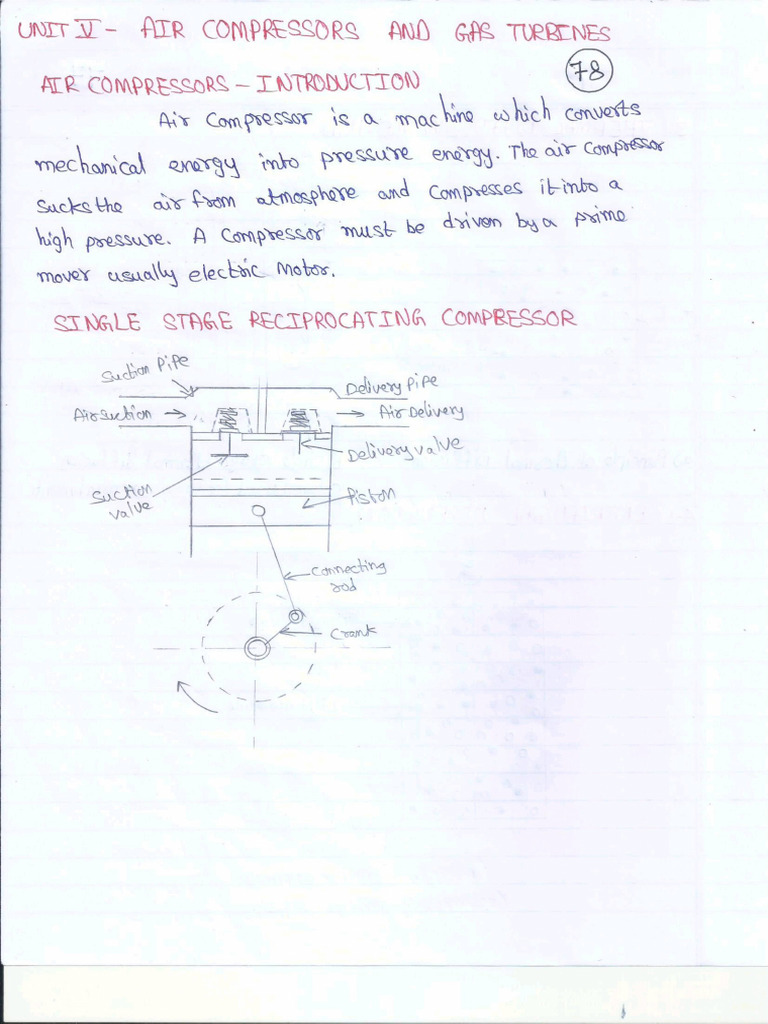 UNIT V - AIR COMPRESSORS AND GAS TURBINES
78
AIR COMPRESSORS - INTRODUCTION
Air Compressor is a machine which converts
mechanical energy into pressure energy. The air compressor
sucks the air from atmosphere and compresses it into a
high pressure. A compressor must be driven by a prime
mover usually electric motor.
SINGLE STAGE RECIPROCATING COMPRESSOR
Suction pipe
Delivery pipe
Air suction
Air Delivery
Delivery valve
Suction
valve
Piston
Connecting
rod
Crank